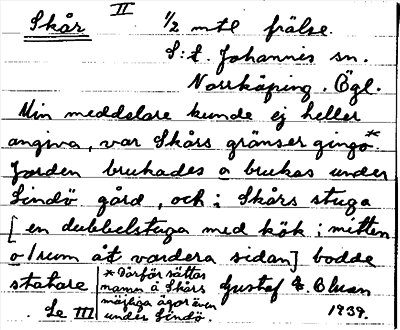 Skår II 1/2 mtl frälse.
S:t Johannis sn.
Norrköping. Ögl.
Min meddelare kunde ej heller
angiva, var Skårs gränser gingo.*
Jorden brukades o brukas under
Lindö gård, och i Skårs stuga
[en dubbelstuga med kök i mitten
o 1 rum åt vardera sidan] bodde
statare
* Därför sättas
namn å Skårs
mäktiga ägor även
under Lindö.
Gustaf E.
Se III
1939.